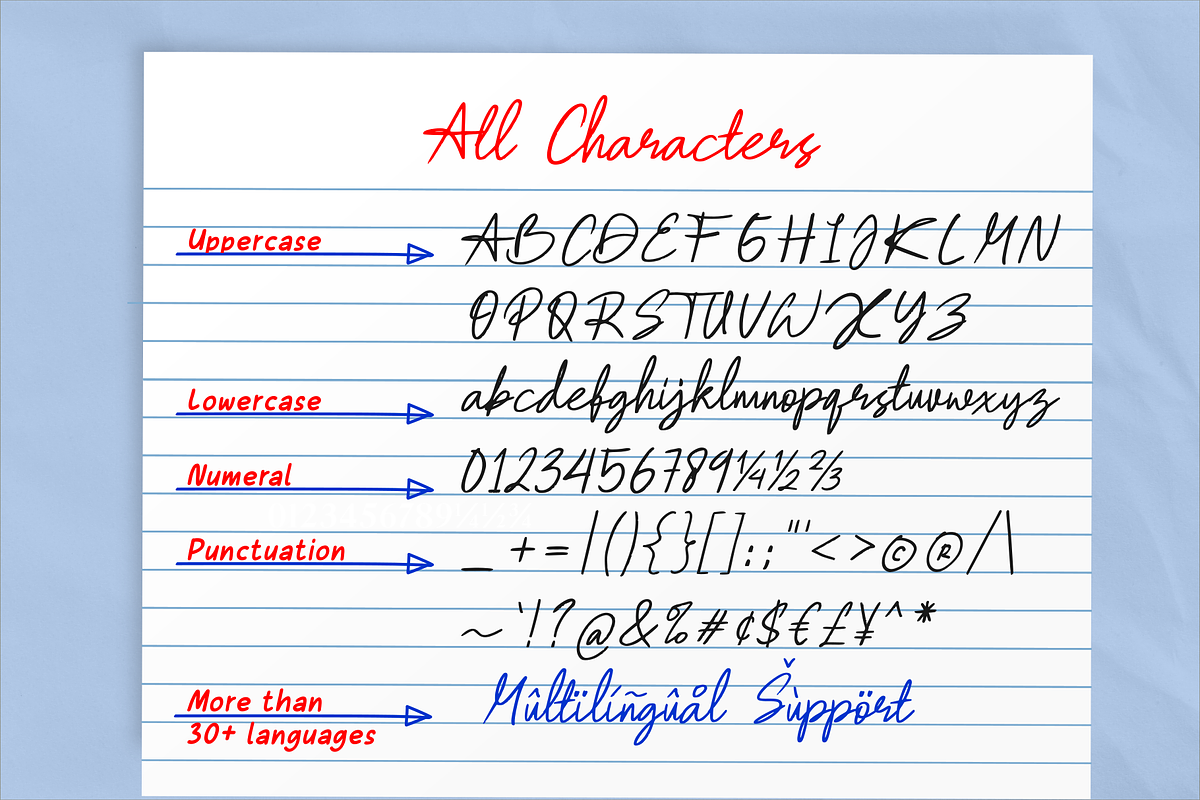 All Characters
Uppercase ABCDEFGHIJKLMN
OPQRSTUVWXYZ
Lowercase abcdefghijklmnopqrstuvwxyz
Numeral 0123456789¼½⅔
Punctuation _+=|(){}[]:;"'<>©®/\
~`!?@&%#¢$€£¥^*
More than Mûltïlíñgûål Šùppört
30+ languages